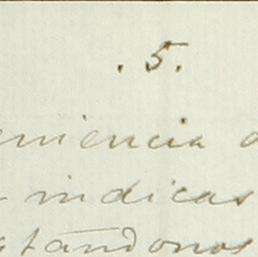 . 5 .
eniencia
indicas
tandonos